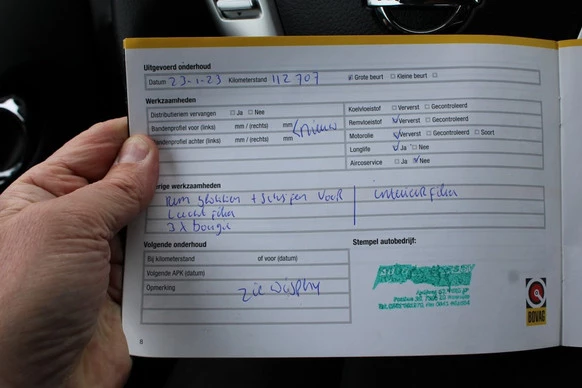 Uitgevoerd onderhoud
Datum 23-1-23 Kilometerstand 112707 Grote beurt Kleine beurt
Werkzaamheden
Distributieriem vervangen Ja Nee
Bandenprofiel voor (links) mm / (rechts) mm
Bandenprofiel achter (links) mm / (rechts) mm
nieuw
Koelvloeistof Ververst Gecontroleerd
Remvloeistof Ververst Gecontroleerd
Motorolie Ververst Gecontroleerd Soort
Longlife Ja Nee
Aircoservice Ja Nee
erige werkzaamheden
Rem blokken + schijven voor
Lucht filter
3x bougie
interieurfilter
Volgende onderhoud
Bij kilometerstand of voor (datum)
Volgende APK (datum)
Opmerking zie display
Stempel autobedrijf:
BOVAG
8